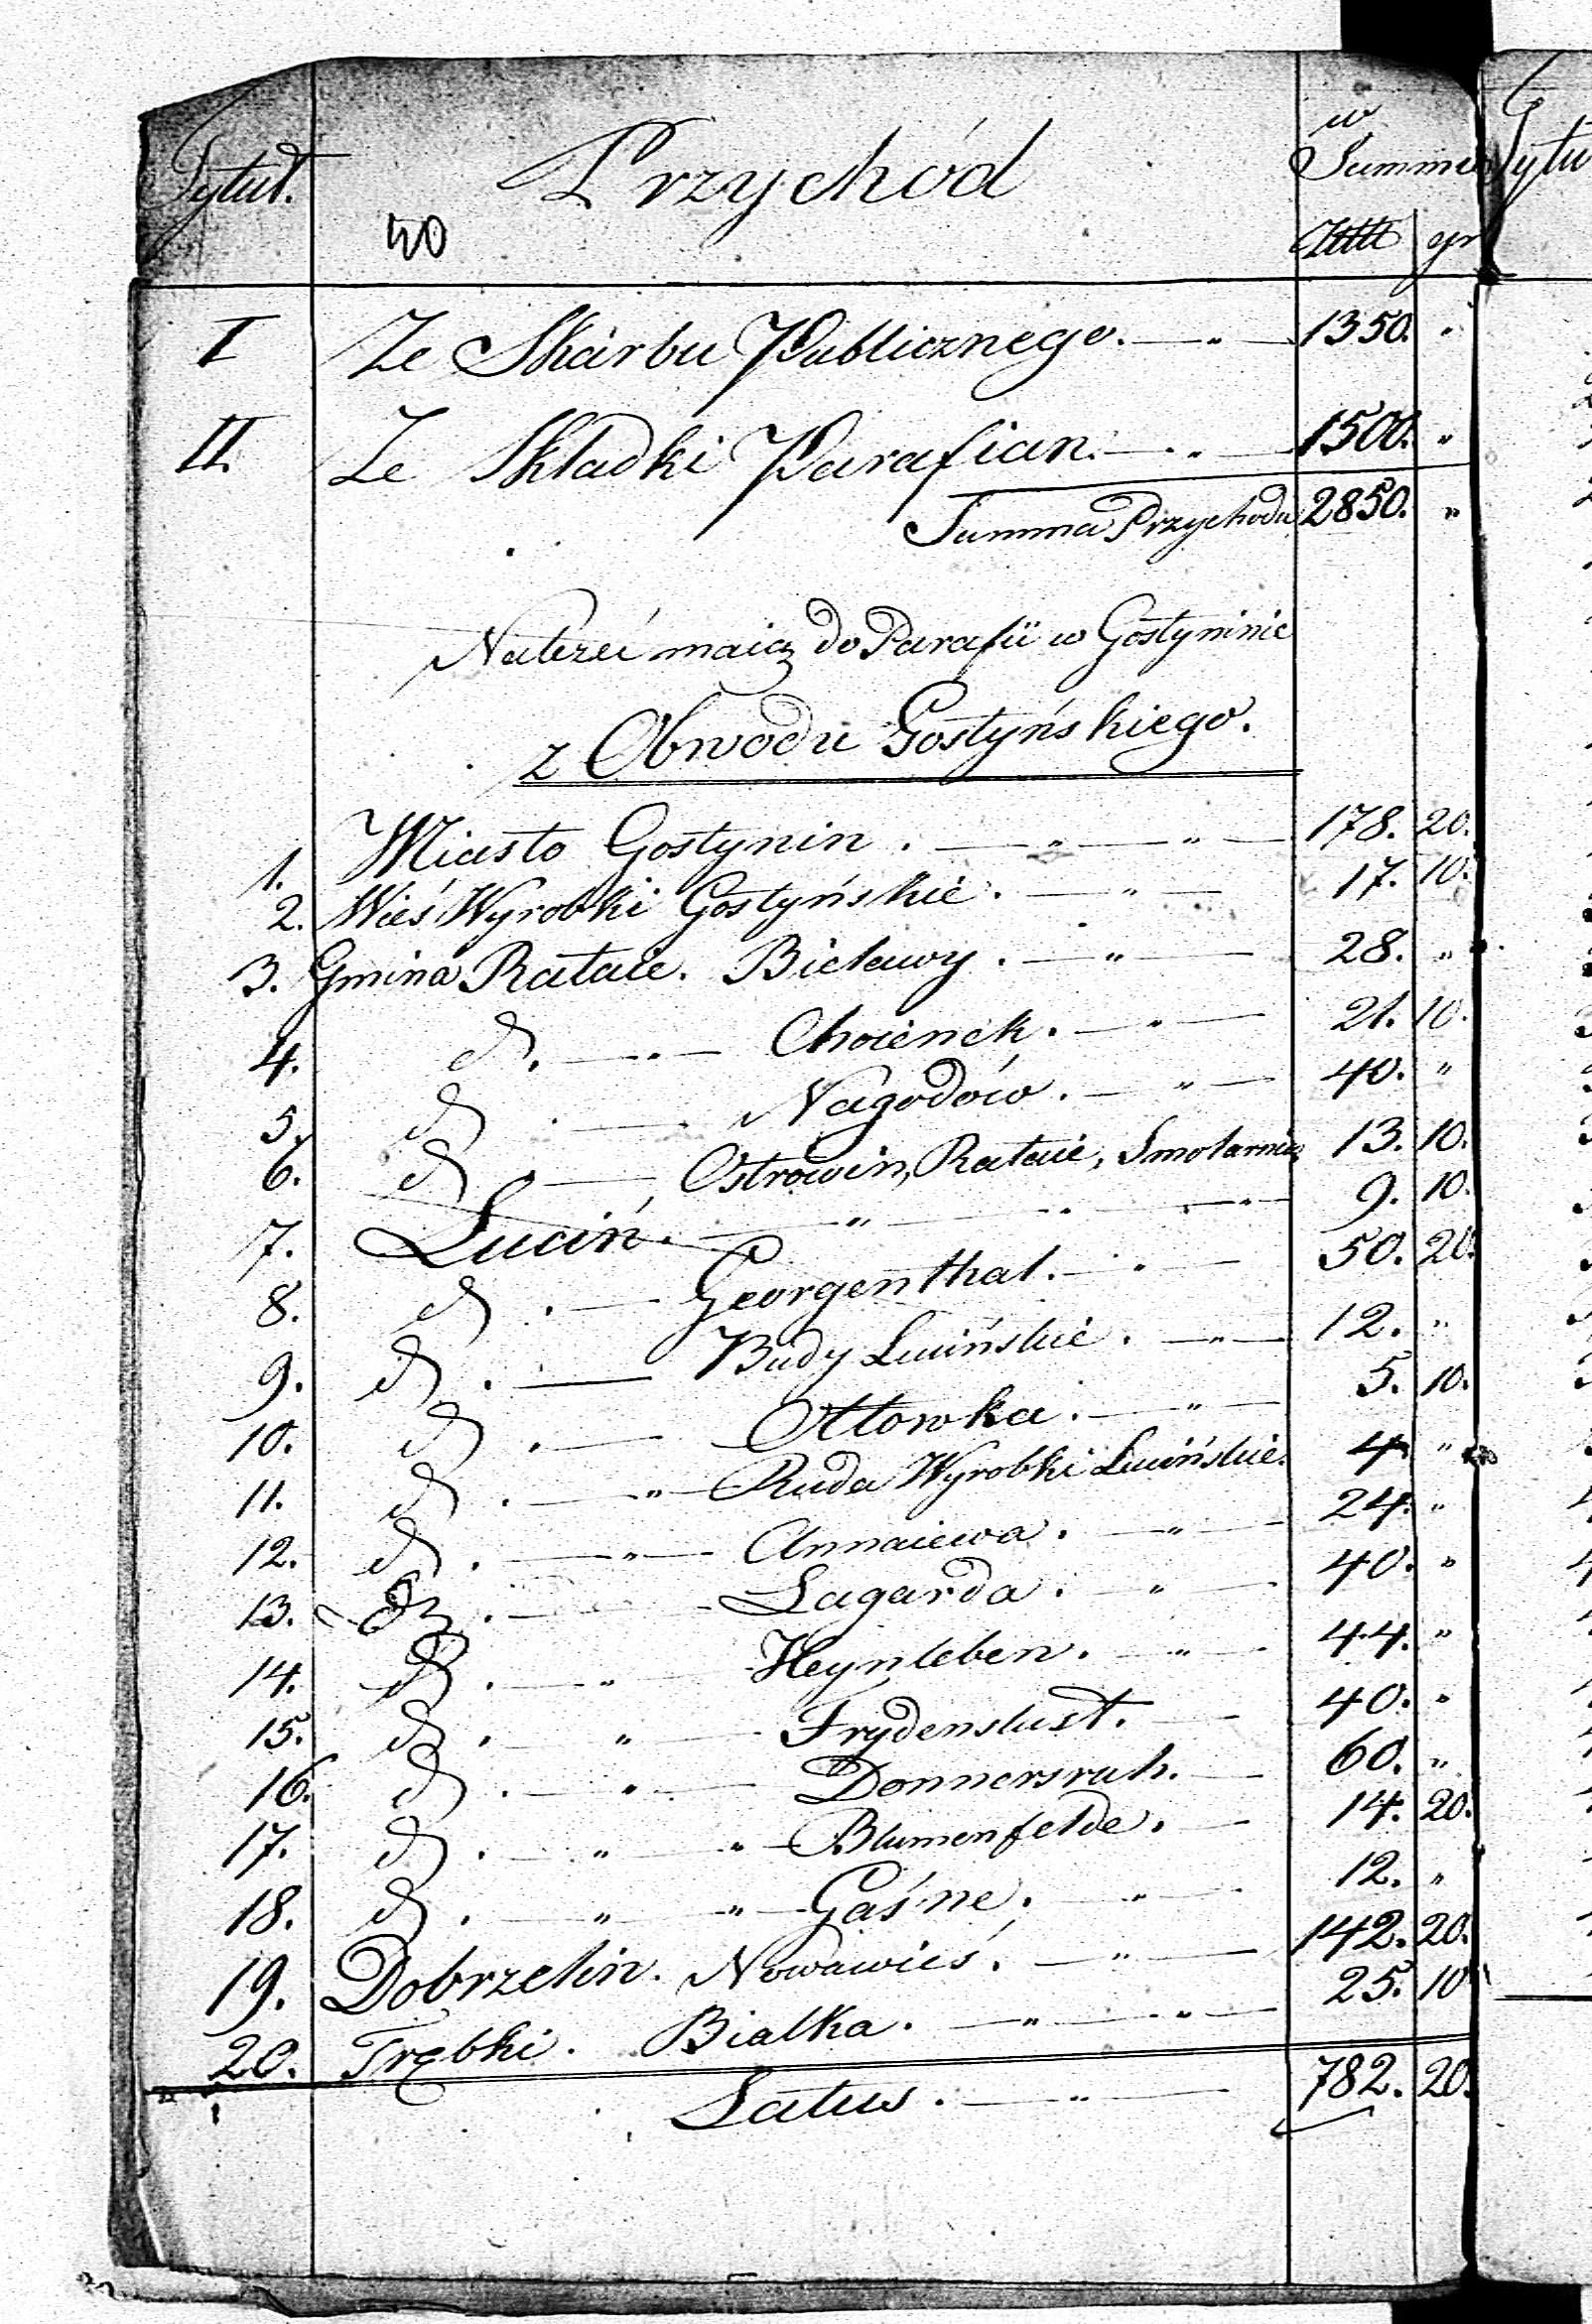 Tytuł. Przychód w Summie
40 Złtt gr
I Ze Skarbu Publicznego. — " — 1350. "
II. Ze Składki Parafian. — " — 1500. "
Summa Przychodu 2850. "
Należeć maią do Parafii w Gostyninie
z Obwodu Gostyńskiego.
1. Miasto Gostynin . — " — " — 178. 20.
2. Wieś Wyrobki Gostyńskie. — " — 17. 10.
3. Gmina Rataie. Bielawy . — " — 28. "
4. d. — " — Choienek. — " — 21. 10.
5. d . — Nagodów. — " — 40. "
6. d . — Ostrowin, Rataie, Smolarnia 13. 10.
7. Luciń. — " — " — 9. 10.
8. d . — Georgenthal. — " — 50. 20.
9. d . — Budy Lucińskie. — " — 12. "
10. d . — Ottowka. — " — 5. 10.
11. d . — " — Ruda Wyrobki Lucińskie. 4. "
12. d . — " — Annaiewa. — " — 24. "
13. d . — Lagarda. " — 40. "
14. d . — " — Heynleben. — " — 44. "
15. d . — " — Frydenslust. — 40. "
16. d . — " — Donnersruh. — 60. "
17. d . — " — " — Blumenfelde. — 14. 20.
18. d . — " — " — Gaśne. — " — 12. "
19. Dobrzelin. Nowawieś. — " — 142. 20.
20. Trębki. Białka. — " — " — 25. 10
Latus. — " — 782. 20.